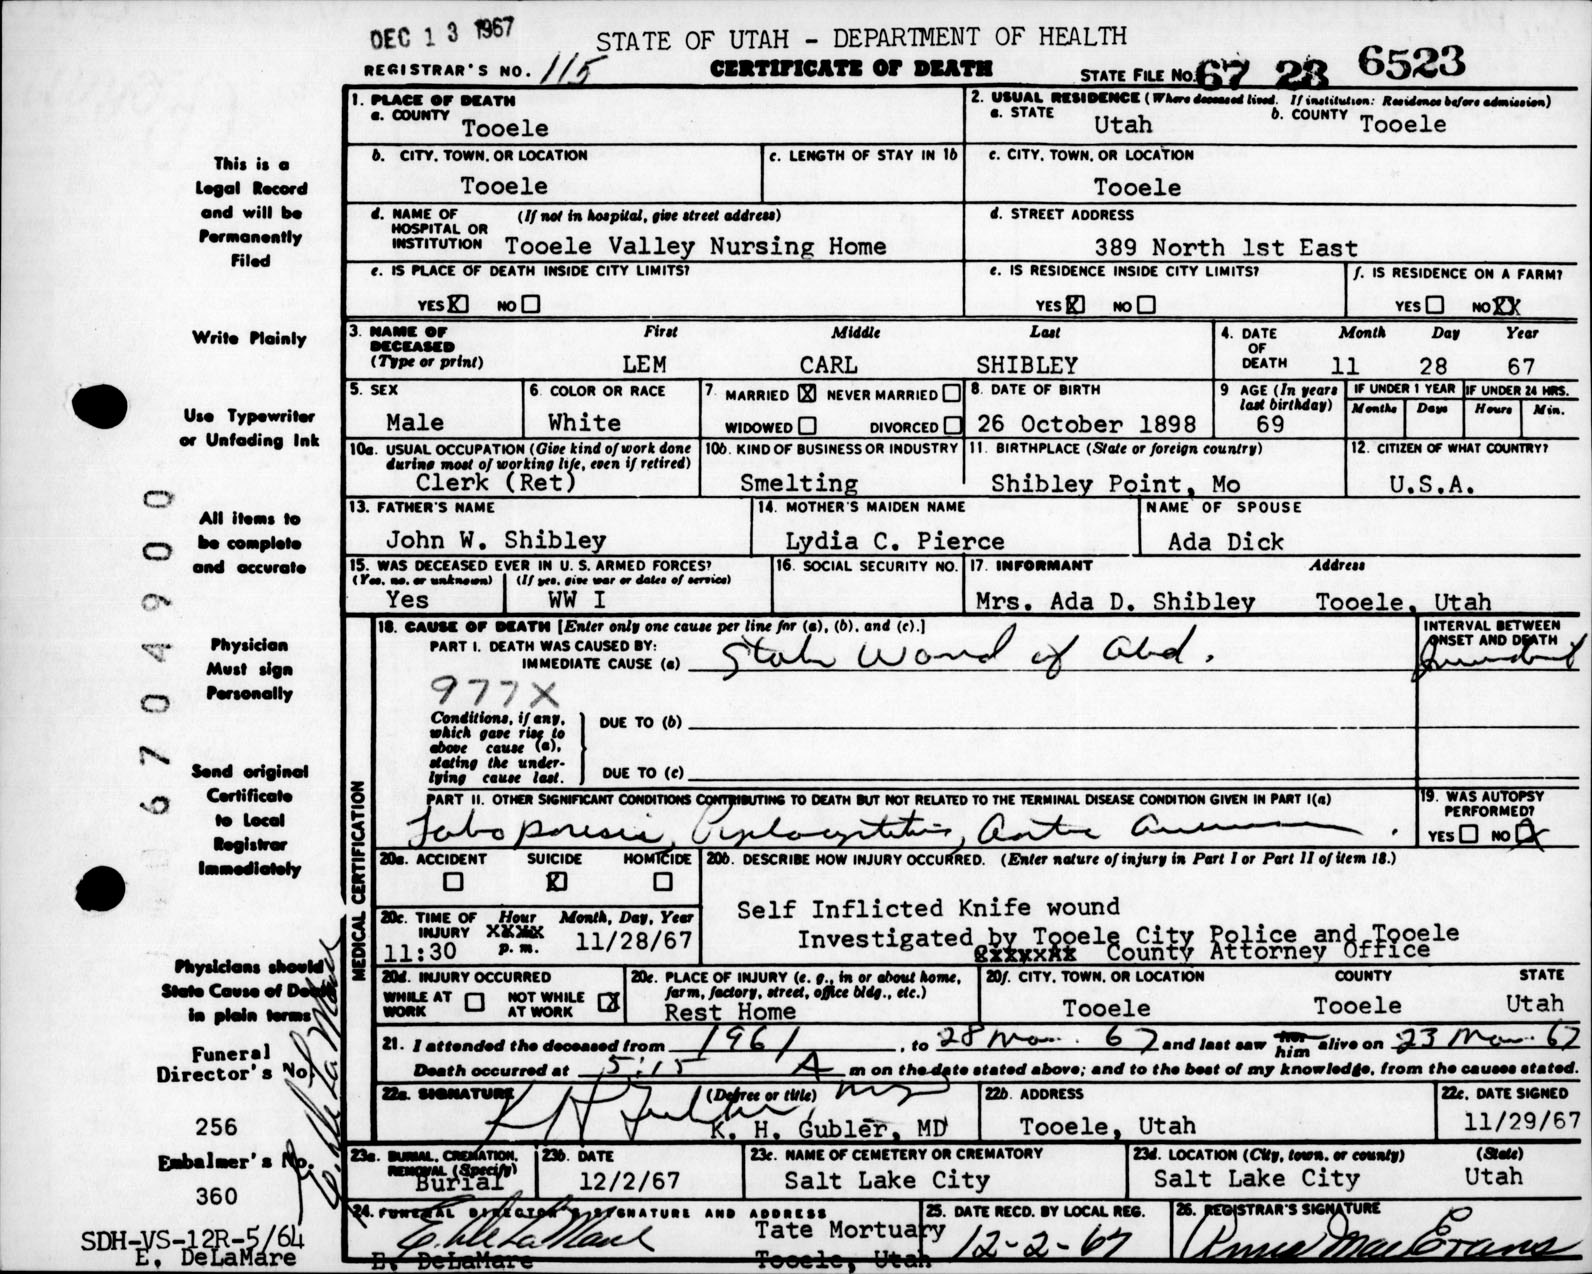 DEC 13 1967
STATE OF UTAH - DEPARTMENT OF HEALTH
REGISTRAR'S NO. 115
CERTIFICATE OF DEATH
STATE FILE No. 67 23 6523
This is a
Legal Record
and will be
Permanently
Filed
Write Plainly
Use Typewriter
or Unfading Ink
All items to
be complete
and accurate
Physician
Must sign
Personally
Send original
Certificate
to Local
Registrar
Immediately
Physicians should
State Cause of Death
in plain terms
Funeral
Director's No.
256
Embalmer's No.
360
SDH-VS-12R-5/64
E. DeLaMare
6704900
1. PLACE OF DEATH
a. COUNTY
Tooele
2. USUAL RESIDENCE (Where deceased lived. If institution: Residence before admission)
a. STATE
Utah
b. COUNTY
Tooele
b. CITY, TOWN, OR LOCATION
Tooele
c. LENGTH OF STAY IN 1b
c. CITY, TOWN, OR LOCATION
Tooele
d. NAME OF HOSPITAL OR INSTITUTION
(If not in hospital, give street address)
Tooele Valley Nursing Home
d. STREET ADDRESS
389 North 1st East
e. IS PLACE OF DEATH INSIDE CITY LIMITS?
YES X NO
e. IS RESIDENCE INSIDE CITY LIMITS?
YES X NO
f. IS RESIDENCE ON A FARM?
YES NO XX
3. NAME OF DECEASED
(Type or print)
First Middle Last
LEM CARL SHIBLEY
4. DATE OF DEATH
Month Day Year
11 28 67
5. SEX
Male
6. COLOR OR RACE
White
7. MARRIED X NEVER MARRIED
WIDOWED DIVORCED
8. DATE OF BIRTH
26 October 1898
9 AGE (In years last birthday)
69
IF UNDER 1 YEAR
Months Days
IF UNDER 24 HRS.
Hours Min.
10a. USUAL OCCUPATION (Give kind of work done during most of working life, even if retired)
Clerk (Ret)
10b. KIND OF BUSINESS OR INDUSTRY
Smelting
11. BIRTHPLACE (State or foreign country)
Shibley Point, Mo
12. CITIZEN OF WHAT COUNTRY?
U.S.A.
13. FATHER'S NAME
John W. Shibley
14. MOTHER'S MAIDEN NAME
Lydia C. Pierce
NAME OF SPOUSE
Ada Dick
15. WAS DECEASED EVER IN U. S. ARMED FORCES?
(Yes, no, or unknown) (If yes, give war or dates of service)
Yes WW I
16. SOCIAL SECURITY NO.
17. INFORMANT Address
Mrs. Ada D. Shibley Tooele, Utah
MEDICAL CERTIFICATION
18. CAUSE OF DEATH [Enter only one cause per line for (a), (b), and (c).]
PART I. DEATH WAS CAUSED BY:
IMMEDIATE CAUSE (a)
Stab Wound of Abd.
INTERVAL BETWEEN ONSET AND DEATH
977X
Conditions, if any, which gave rise to above cause (a), stating the underlying cause last.
DUE TO (b)
DUE TO (c)
PART II. OTHER SIGNIFICANT CONDITIONS CONTRIBUTING TO DEATH BUT NOT RELATED TO THE TERMINAL DISEASE CONDITION GIVEN IN PART I(a)
19. WAS AUTOPSY PERFORMED?
YES NO X
20a. ACCIDENT SUICIDE HOMICIDE
X
20b. DESCRIBE HOW INJURY OCCURRED. (Enter nature of injury in Part I or Part II of item 18.)
Self Inflicted Knife wound
Investigated by Tooele City Police and Tooele
County Attorney Office
20c. TIME OF INJURY
Hour Month, Day, Year
11:30 p.m. 11/28/67
20d. INJURY OCCURRED
WHILE AT WORK NOT WHILE AT WORK X
20e. PLACE OF INJURY (e. g., in or about home, farm, factory, street, office bldg., etc.)
Rest Home
20f. CITY, TOWN, OR LOCATION COUNTY STATE
Tooele Tooele Utah
21. I attended the deceased from 1961, to 28 Nov. 67 and last saw her him alive on 23 Nov. 67
Death occurred at 5:15 A m on the date stated above; and to the best of my knowledge, from the causes stated.
22a. SIGNATURE (Degree or title)
K H Gubler, MD
K. H. Gubler, MD
22b. ADDRESS
Tooele, Utah
22c. DATE SIGNED
11/29/67
23a. BURIAL, CREMATION, REMOVAL (Specify)
Burial
23b. DATE
12/2/67
23c. NAME OF CEMETERY OR CREMATORY
Salt Lake City
23d. LOCATION (City, town, or county) (State)
Salt Lake City Utah
24. FUNERAL DIRECTOR'S SIGNATURE AND ADDRESS
E. DeLaMare
Tate Mortuary
E. DeLaMare Tooele, Utah
25. DATE RECD. BY LOCAL REG.
12-2-67
26. REGISTRAR'S SIGNATURE